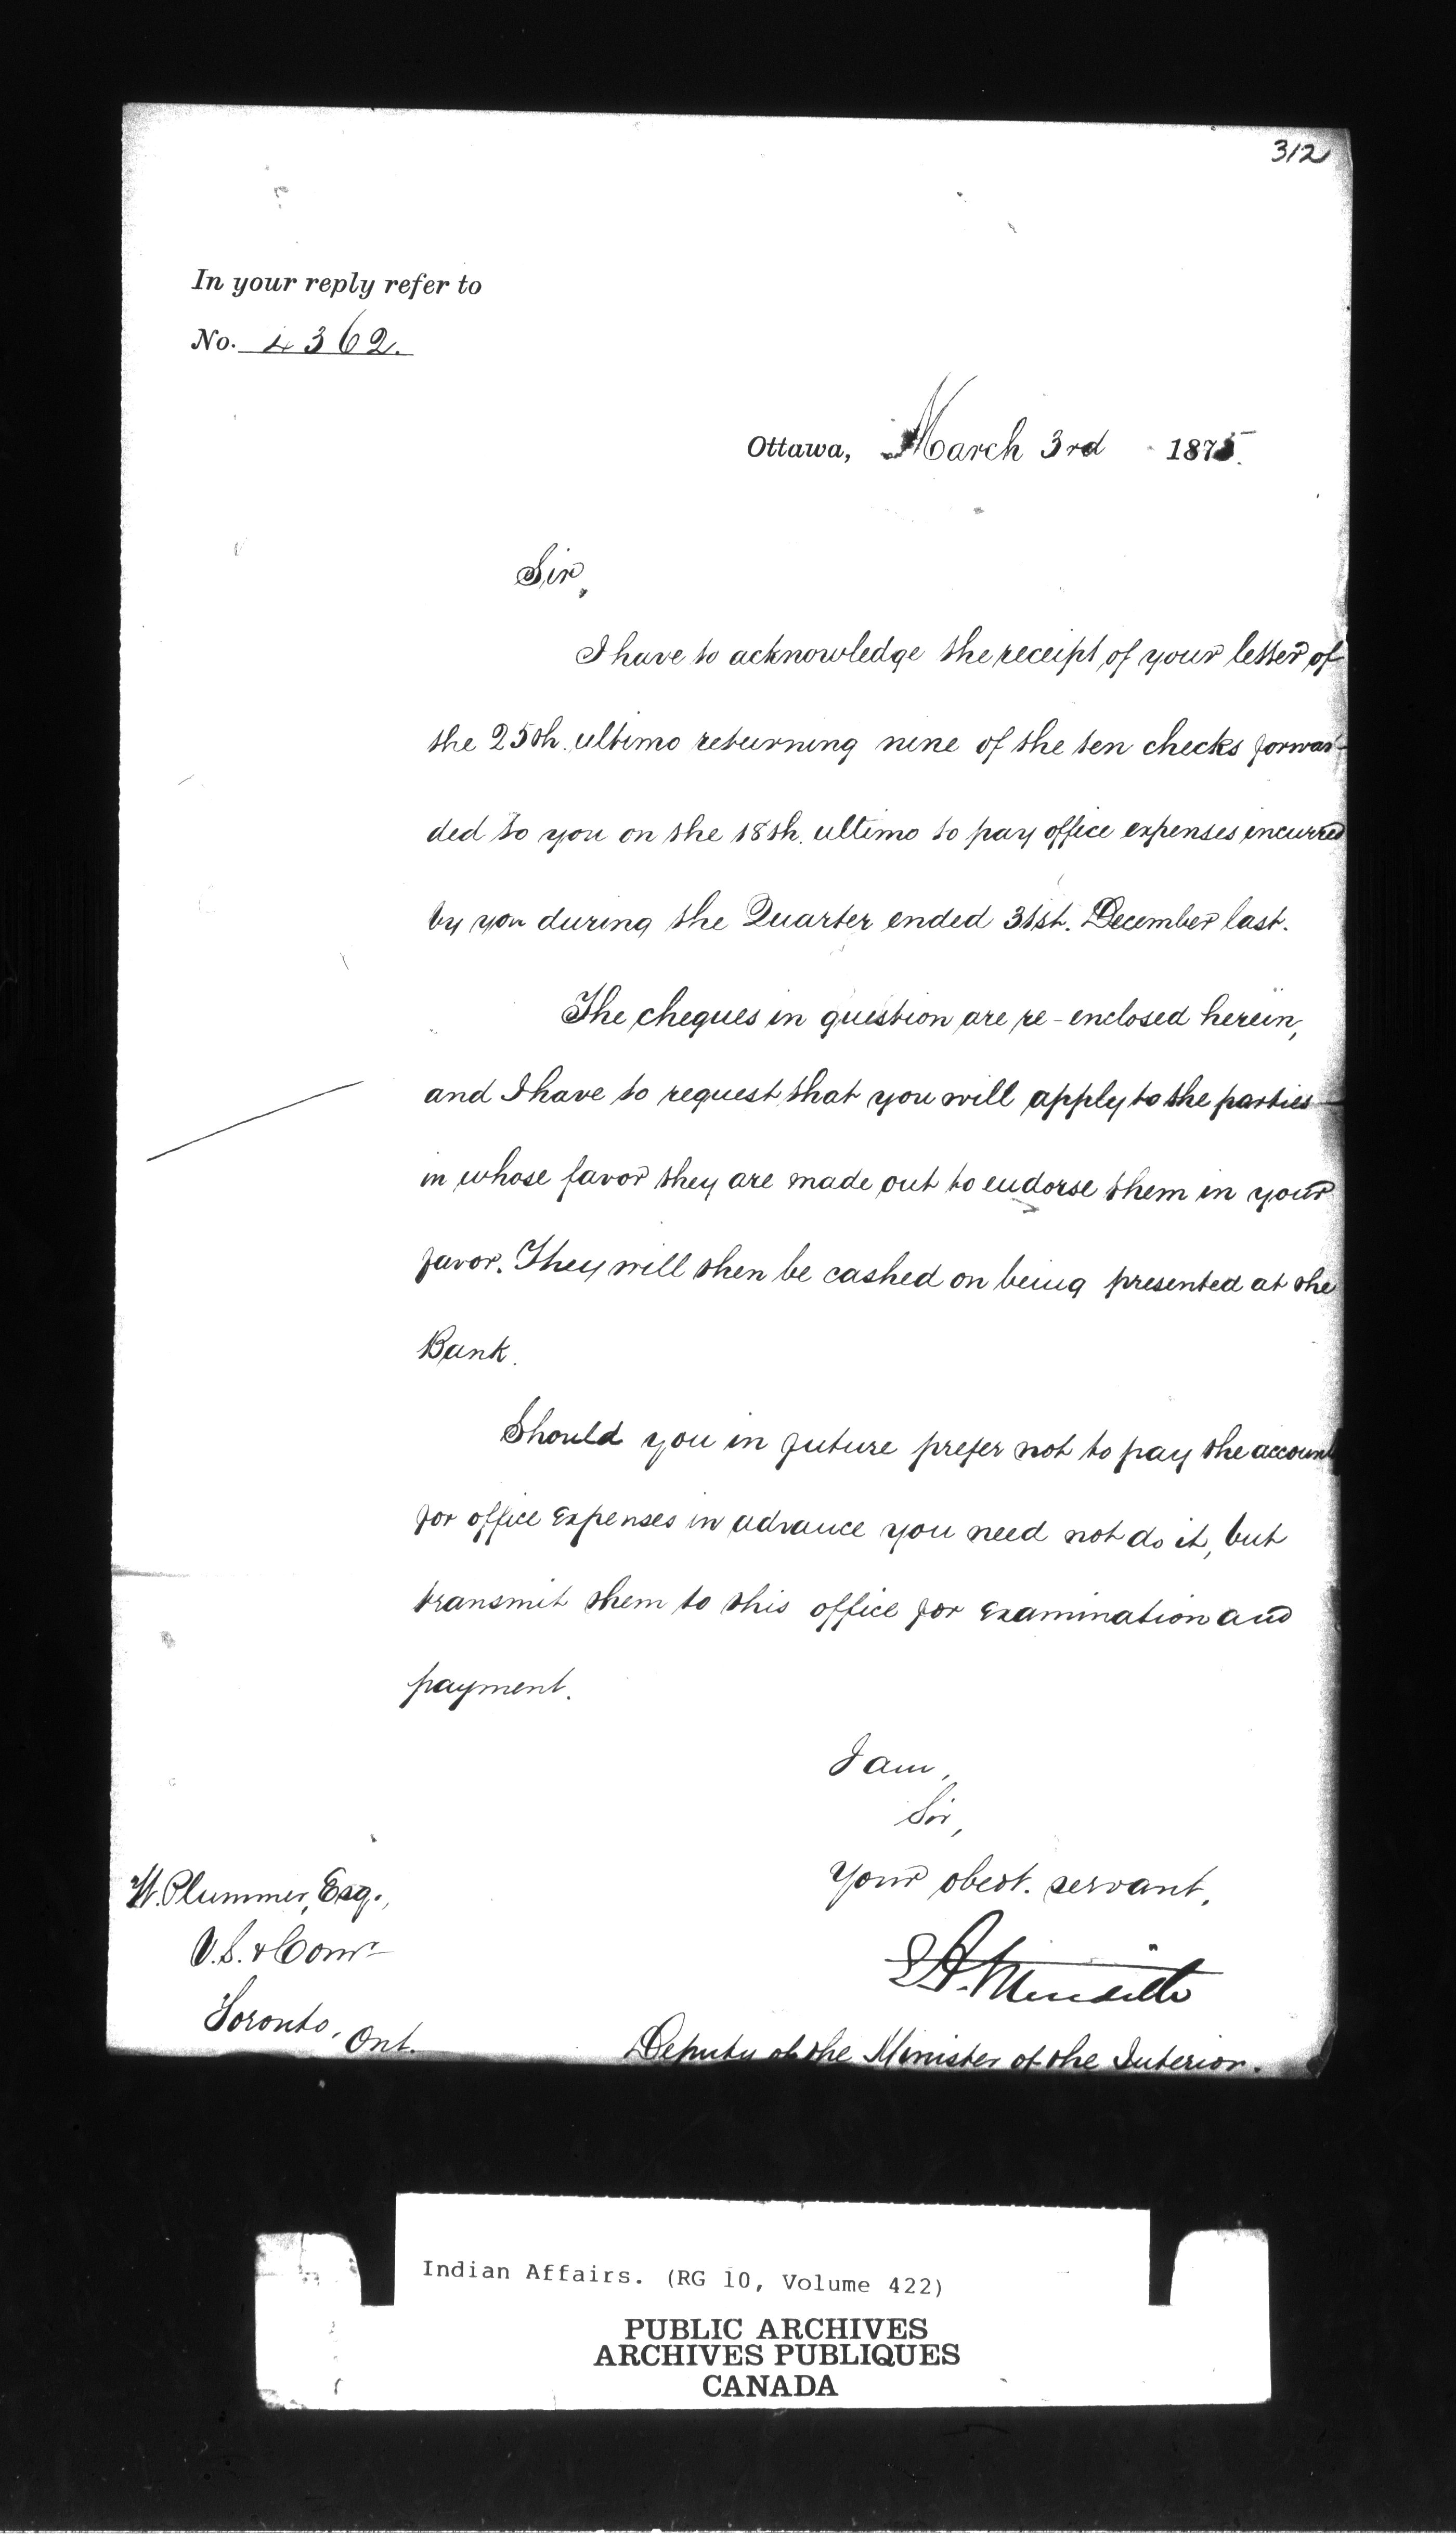 312
In your reply refer to
No. 4362.
Ottawa, March 3rd 1875.
Sir,
I have to acknowledge the receipt of your letter of
the 25th. ultimo returning nine of the ten checks forwar-
ded to you on the 18th. ultimo to pay office expenses incurred
by you during the Quarter ended 31st. December last.
The cheques in question are re-enclosed herein,
and I have to request that you will apply to the parties
in whose favor they are made out to endorse them in your
favor. They will then be cashed on being presented at the
Bank.
Should you in future prefer not to pay the account
for office expenses in advance you need not do it, but
transmit them to this office for examination and
payment.
I am,
Sir,
Your obedt. servant,
Deputy of the Minister of the Interior.
W. Plummer, Esq.,
V.S. & Comr
Toronto, Ont.
Indian Affairs. (RG 10, Volume 422)
PUBLIC ARCHIVES
ARCHIVES PUBLIQUES
CANADA